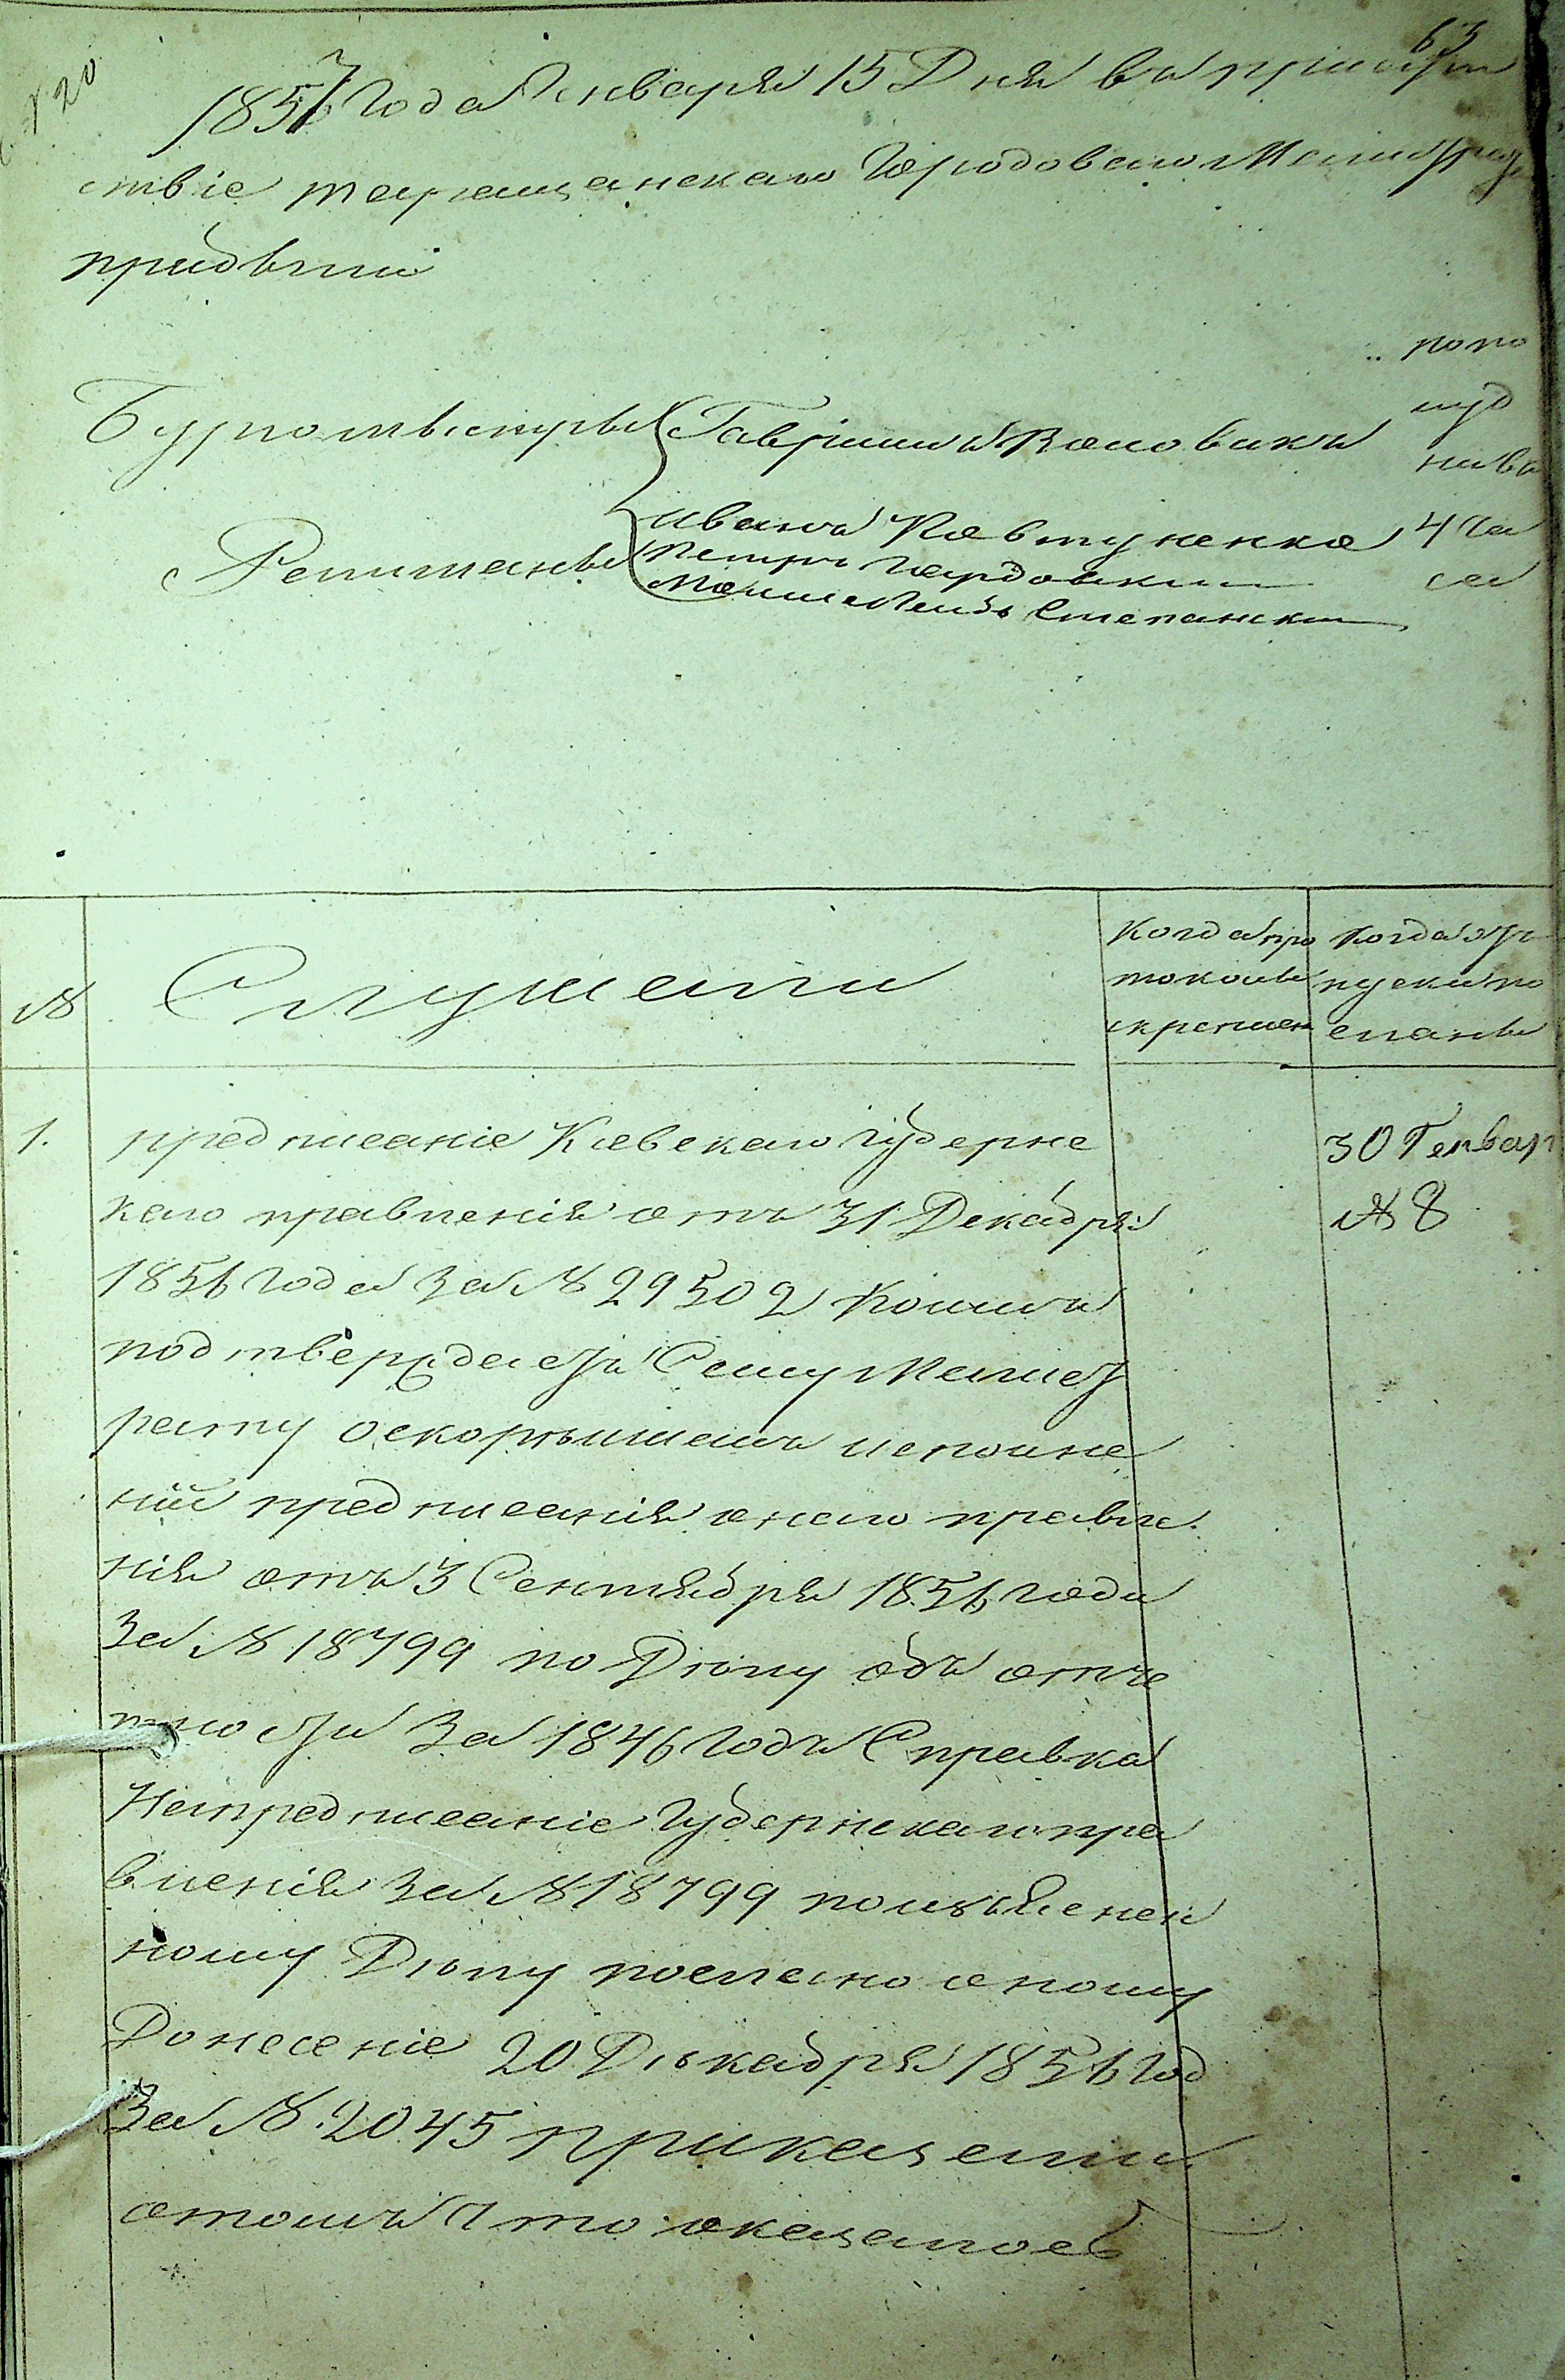 63
№ 20
1857 года Января 15 Дня въ присут
ствіе таращанскаго Городоваго Магистрата
прибыли
попо
луд
ни въ
4 ча
са
Бургомистры Гавріилъ Воловикъ
Иванъ Ковтуненко
Ратманы Петръ
Степански
№
Слушали
Когда про
токолы
скреплен
Когда от
пуски по
сланы
1.
предписаніе Кіевскаго Губернс
каго правленія отъ 31 Декабря
1856 года за № 29502 коимъ
подтверждаетъ Сему Магист
рату о скорѣйшемъ исполне
ніи предписанія онаго правле
нія отъ 3 Сентября 1856 года
За № 18799 по Дѣлу объ отче
тности За 1846 годъ Справка
На предписаніе Губернскаго пра
вленія За № 18799 по изъяснен
ному Дѣлу послано оному
Донесеніе 20 Декабря 1856 год
За № 2045 приказали
отомъ что оказалось
30 Генвар
№ 8